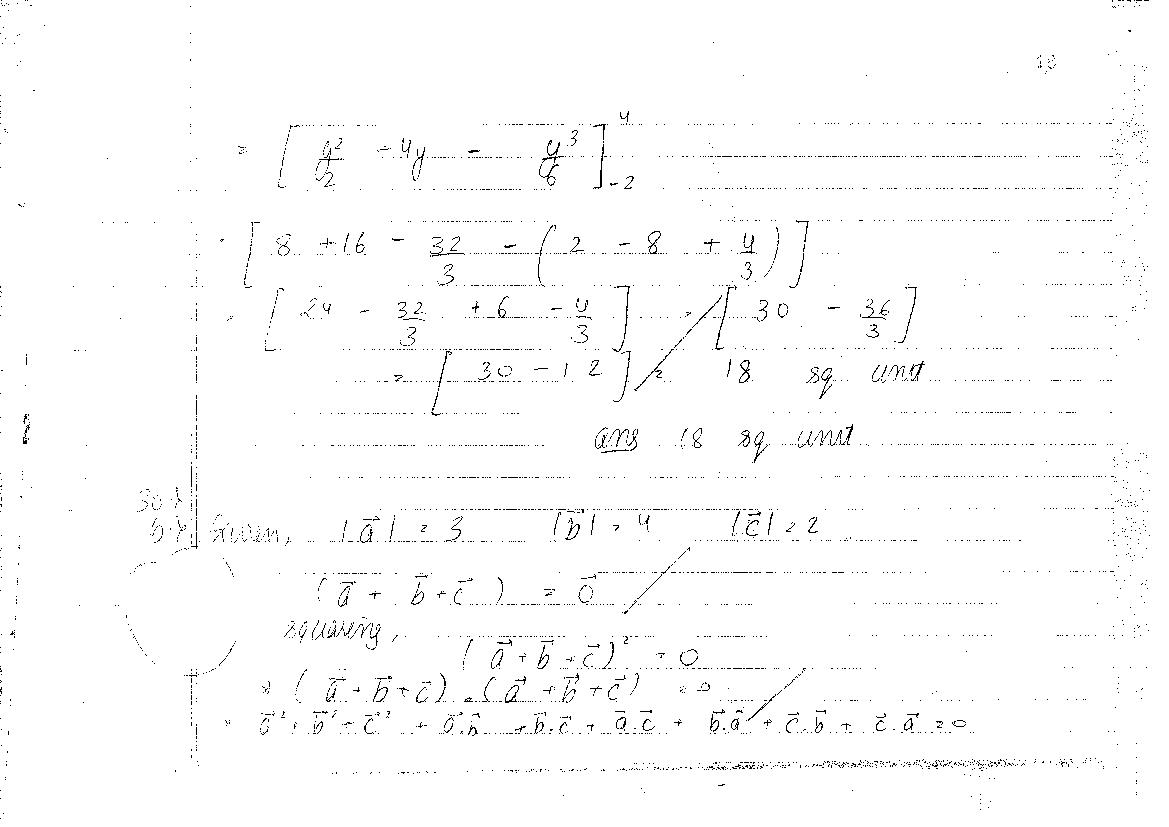 18
= [ y²/2 + 4y - y³/6 ]⁴₋₂
= [ 8 + 16 - 32/3 - ( 2 - 8 + 4/3 ) ]
= [ 24 - 32/3 + 6 - 4/3 ] = [ 30 - 36/3 ]
= [ 30 - 12 ] = 18 sq unit
ans 18 sq unit
30.)
b.) Given, |a⃗| = 3 |b⃗| = 4 |c⃗| = 2
( a⃗ + b⃗ + c⃗ ) = 0⃗
squaring,
( a⃗ + b⃗ + c⃗ )² = 0
⇒ ( a⃗ + b⃗ + c⃗ ) . ( a⃗ + b⃗ + c⃗ ) = 0
= a⃗² + b⃗² + c⃗² + a⃗.b⃗ + b⃗.c⃗ + a⃗.c⃗ + b⃗.a⃗ + c⃗.b⃗ + c⃗.a⃗ = 0